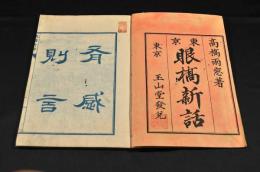 高橋雨窓著
東京
眼橋新話
東京 玉山堂發兌
有感
則言